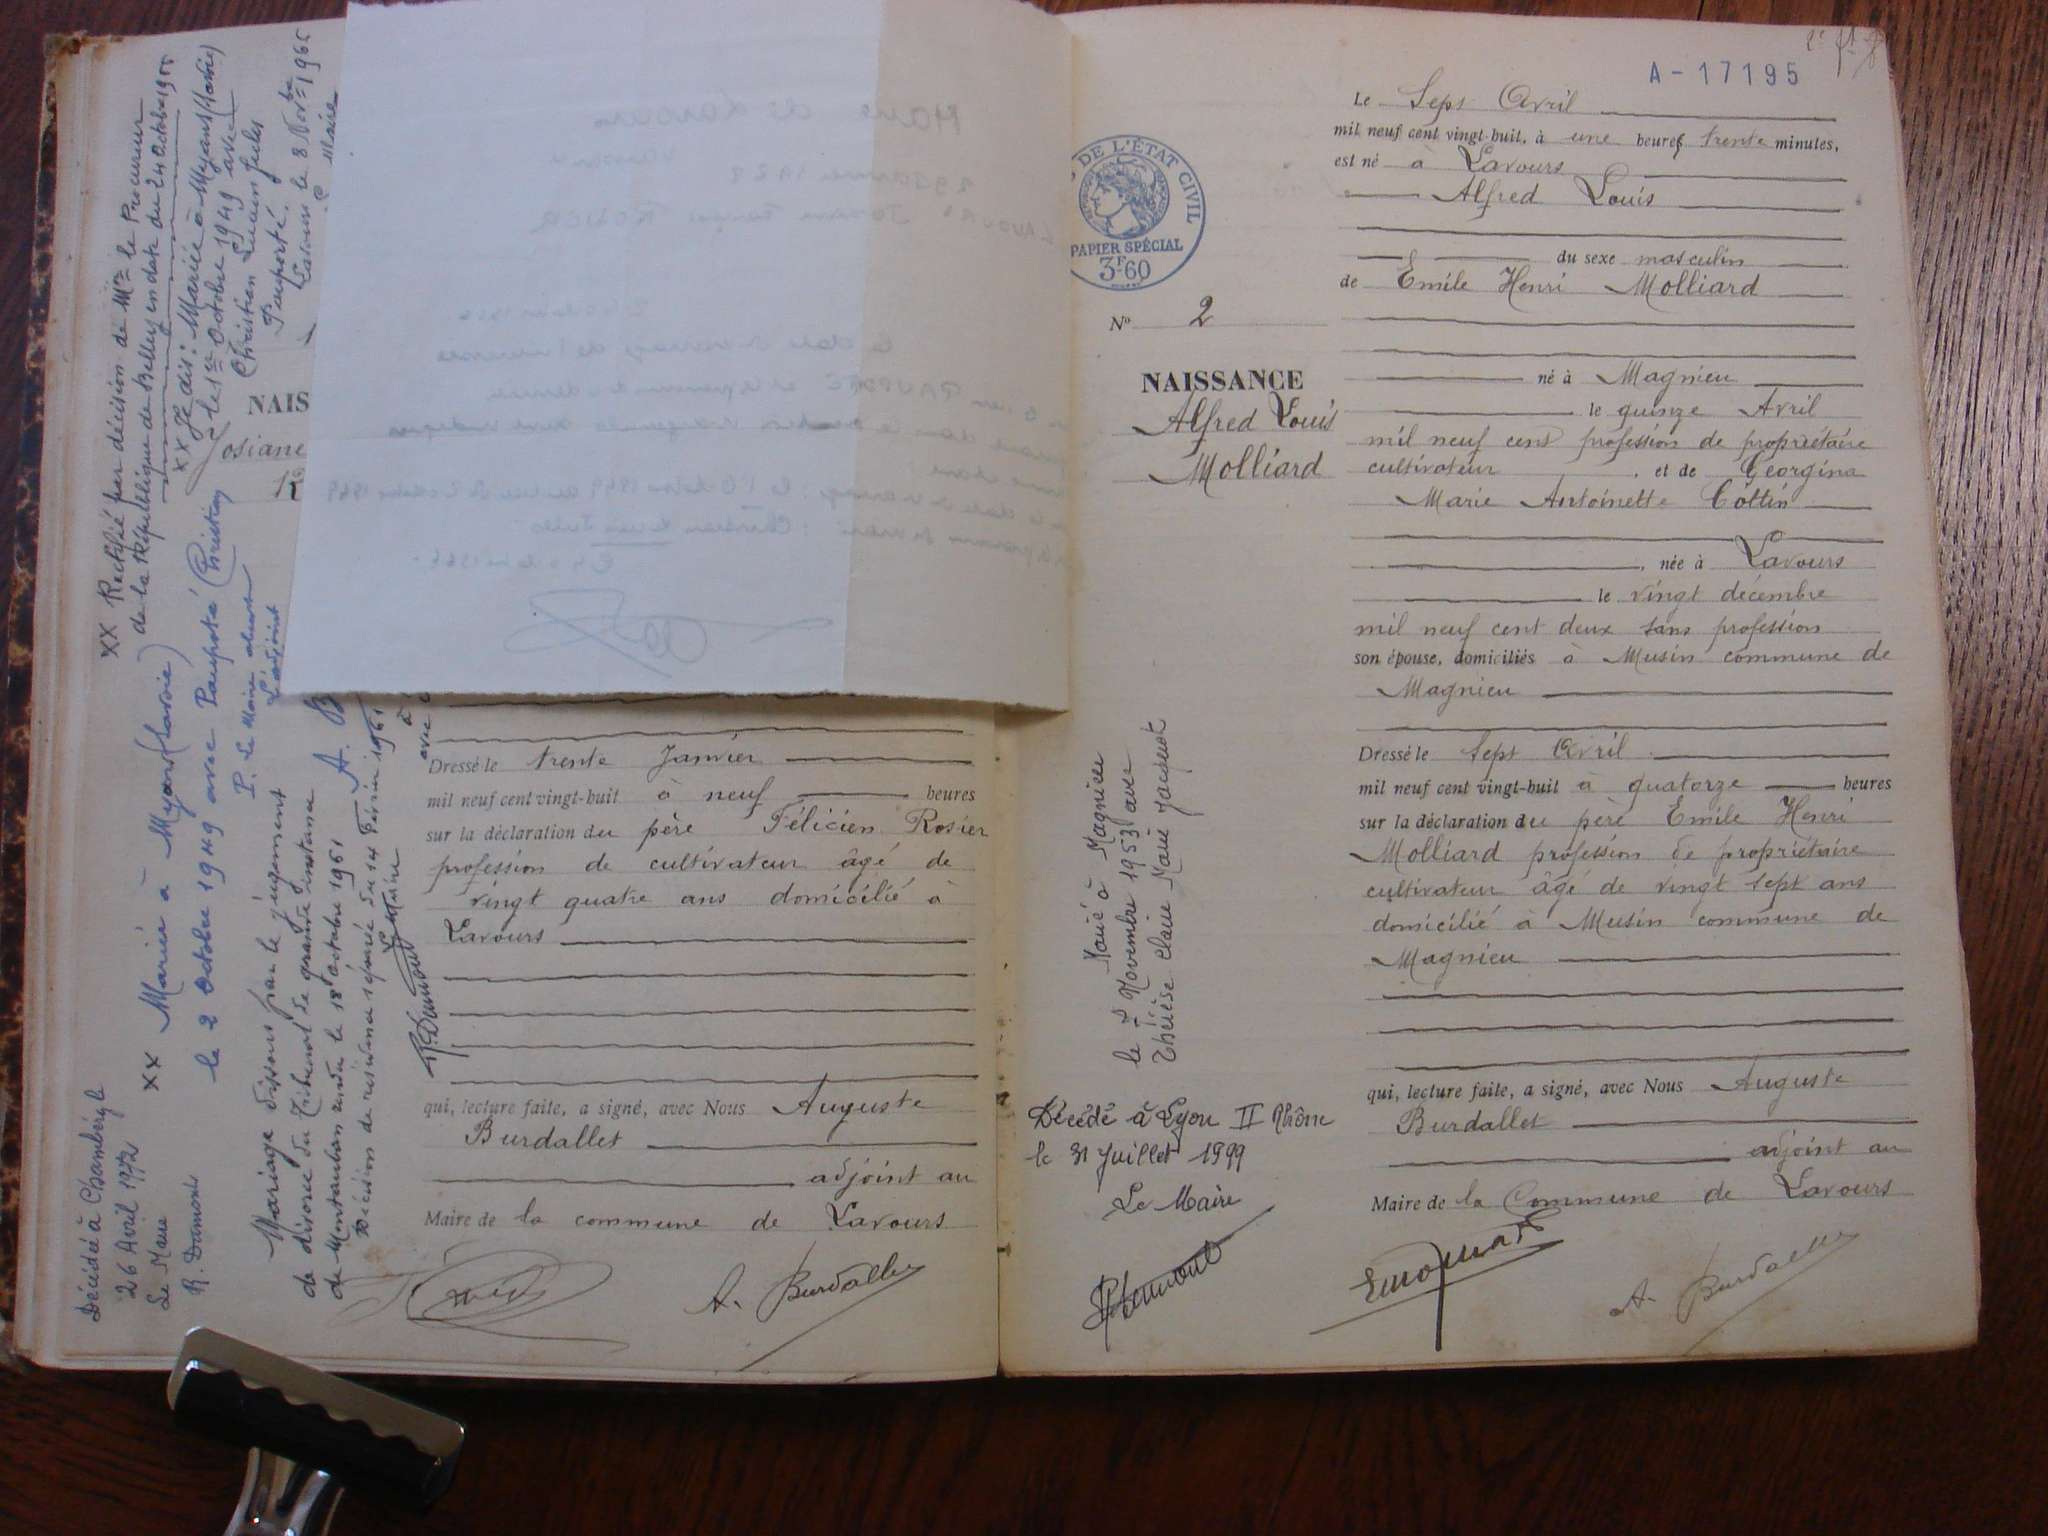 XX Rectifié par décision de Mr le Procureur
de la République de Belley en date du 24 Octobre 1955
XX Je dis : Mariée à Myans (Savoie)
le 1er Octobre 1949 avec
Christian Lucien Jules
Paupoté.
Lavours le 8 Novbre 1965
Le Maire
NAIS
Josiane
R
XX Mariée à Myans (Savoie)
le 2 Octobre 1949 avec Paupoté Christian
P. Le Maire absent
L'adjoint
A. B
Mariage dissous par le jugement
de divorce du Tribunal de grande instance
de Montauban rendu le 18 Octobre 1961
Décision de résidence séparée du 14 Février 1961
Le Maire
R. Dumont
Décédée à Chambéry le
26 Avril 1972
Le Maire
R. Dumont
Dressé le trente Janvier
mil neuf cent vingt-huit à neuf heures
sur la déclaration du père Félicien Rosier
profession de cultivateur âgé de
vingt quatre ans domicilié à
Lavours
qui, lecture faite, a signé, avec Nous Auguste
Burdallet
adjoint au
Maire de la commune de Lavours
A. Burdallet
A-17195
DE L'ÉTAT CIVIL
PAPIER SPÉCIAL
3F60
No 2
NAISSANCE
Alfred Louis
Molliard
Marié à Magnieu
le Novembre 1953 avec
Thérèse Claire Marie Jacquet
Décédé à Lyon II Rhône
le 31 Juillet 1999
Le Maire
Le Sept Avril
mil neuf cent vingt-huit, à une heures trente minutes,
est né à Lavours
Alfred Louis
du sexe masculin
de Emile Henri Molliard
né à Magnieu
le quinze Avril
mil neuf cent profession de propriétaire
cultivateur, et de Georgina
Marie Antoinette Cottin
, née à Lavours
le vingt décembre
mil neuf cent deux sans profession
son épouse, domiciliés à Musin commune de
Magnieu
Dressé le Sept Avril
mil neuf cent vingt-huit à quatorze heures
sur la déclaration du père Emile Henri
Molliard profession de propriétaire
cultivateur âgé de vingt sept ans
domicilié à Musin commune de
Magnieu
qui, lecture faite, a signé, avec Nous Auguste
Burdallet
adjoint au
Maire de la Commune de Lavours
A. Burdallet